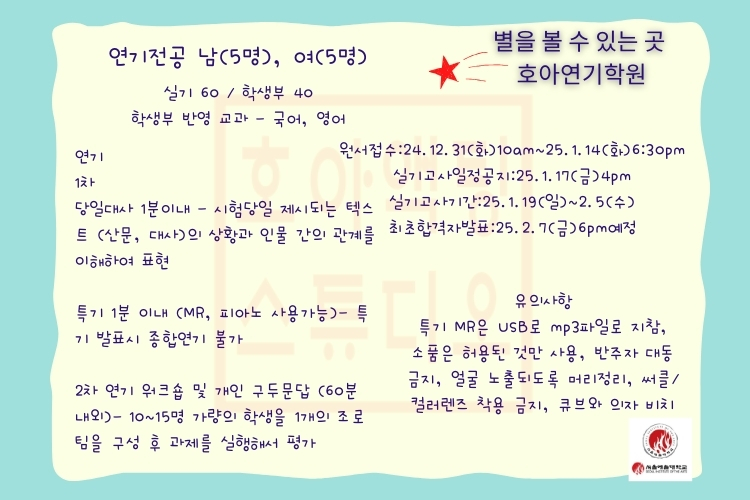 연기전공 남(5명), 여(5명)
실기 60 / 학생부 40
학생부 반영 교과 - 국어, 영어
별을 볼 수 있는 곳
호아연기학원
연기
1차
당일대사 1분이내 - 시험당일 제시되는 텍스
트 (산문, 대사)의 상황과 인물 간의 관계를
이해하여 표현
특기 1분 이내 (MR, 피아노 사용가능)- 특
기 발표시 종합연기 불가
2차 연기 워크숍 및 개인 구두문답 (60분
내외)- 10~15명 가량의 학생을 1개의 조로
팀을 구성 후 과제를 실행해서 평가
원서접수:24.12.31(화)10am~25.1.14(화)6:30pm
실기고사일정공지:25.1.17(금)4pm
실기고사기간:25.1.19(일)~2.5(수)
최초합격자발표:25.2.7(금)6pm예정
유의사항
특기 MR은 USB로 mp3파일로 지참,
소품은 허용된 것만 사용, 반주자 대동
금지, 얼굴 노출되도록 머리정리, 써클/
컬러렌즈 착용 금지, 큐브와 의자 비치
호아액팅
스튜디오
서울예술대학교
SEOUL INSTITUTE OF THE ARTS